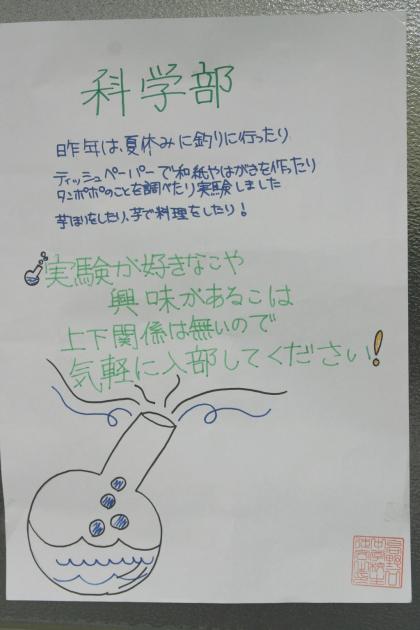 科学部
昨年は、夏休みに釣りに行ったり
ティッシュペーパーで和紙やはがきを作ったり
タンポポのことを調べたり実験しました
芋ほりをしたり、芋で料理をしたり！
実験が好きなこや
興味があるこは
上下関係は無いので
気軽に入部してください！